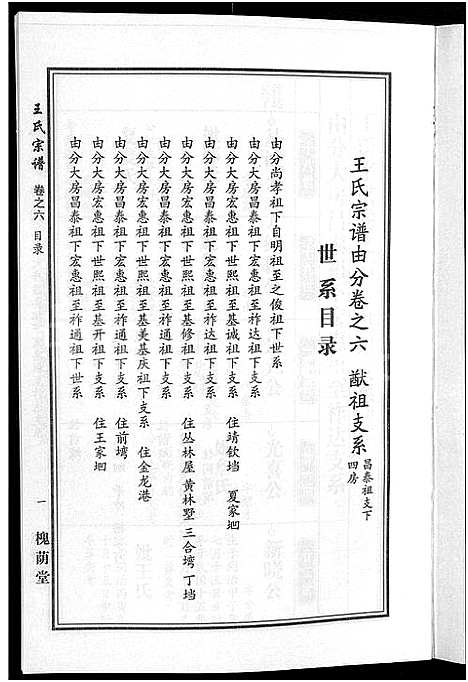 王氏宗谱由分卷之六 猷祖支系 昌泰祖支下
四房
世系目录
由分尚孝祖下自明祖至之俊祖下世系
由分大房昌泰祖下宏惠祖至祚达祖下支系
由分大房宏惠祖下世熙祖至基诚祖下支系 住靖钦垱 夏家垇
由分大房昌泰祖下宏惠祖至祚达祖下支系
由分大房宏惠祖下世熙祖至基修祖下支系 住丛林屋 黄林墅 三合塆 丁垱
由分大房昌泰祖下宏惠祖至祚通祖下世系
由分大房宏惠祖下世熙祖至基美基庆祖下支系 住金龙港
由分大房昌泰祖下宏惠祖至祚通祖下支系 住前塆
由分大房宏惠祖下世熙祖至基开祖下支系 住王家垇
由分大房昌泰祖下宏惠祖至祚通祖下世系
王氏宗谱 卷之六 目录
一
槐荫堂